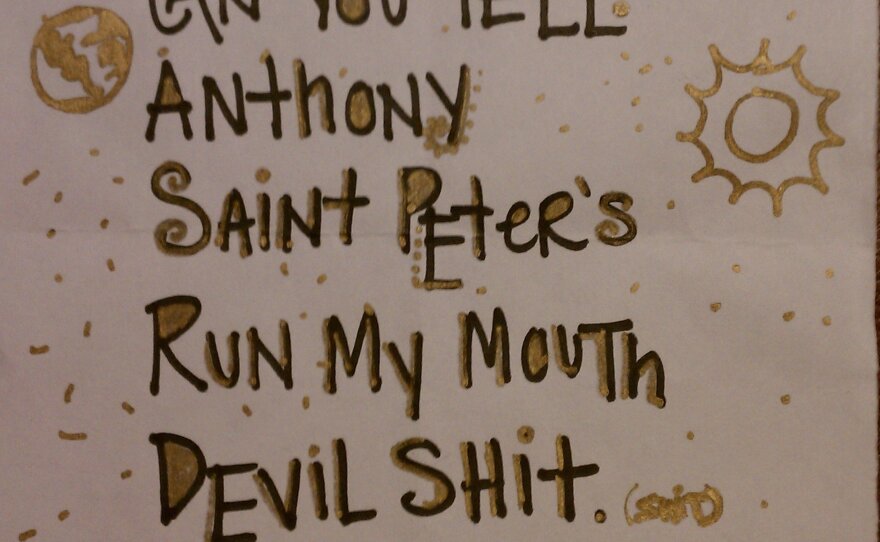 CAN YOU TELL
ANthONy
SAiNt PEteR's
RUN My MouTh
DEViL SHit.